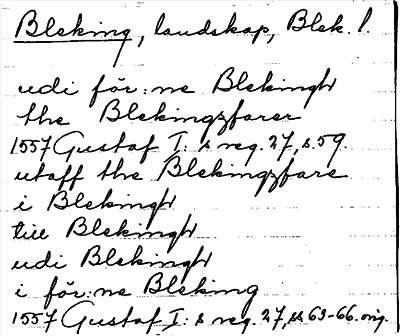 Bleking, landskap, Blek. l.
udi för:ne Blekingh
the Blekingzfarer
1557 Gustaf I:s reg. 27, s. 59.
utaff the Blekingzfare
i Blekingh
till Blekingh
udi Blekingh
i för:ne Bleking
1557 Gustaf I:s reg. 27, ss 63-66. orig.